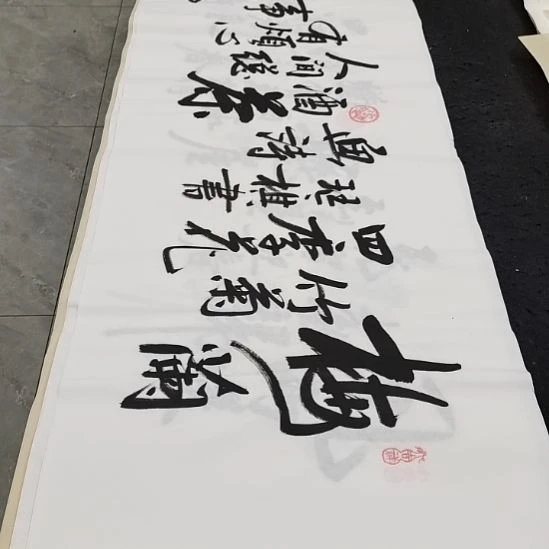 梅蘭
竹菊
四季花
琴棋書
畫詩
酒茶
人間縱
有煩心
事